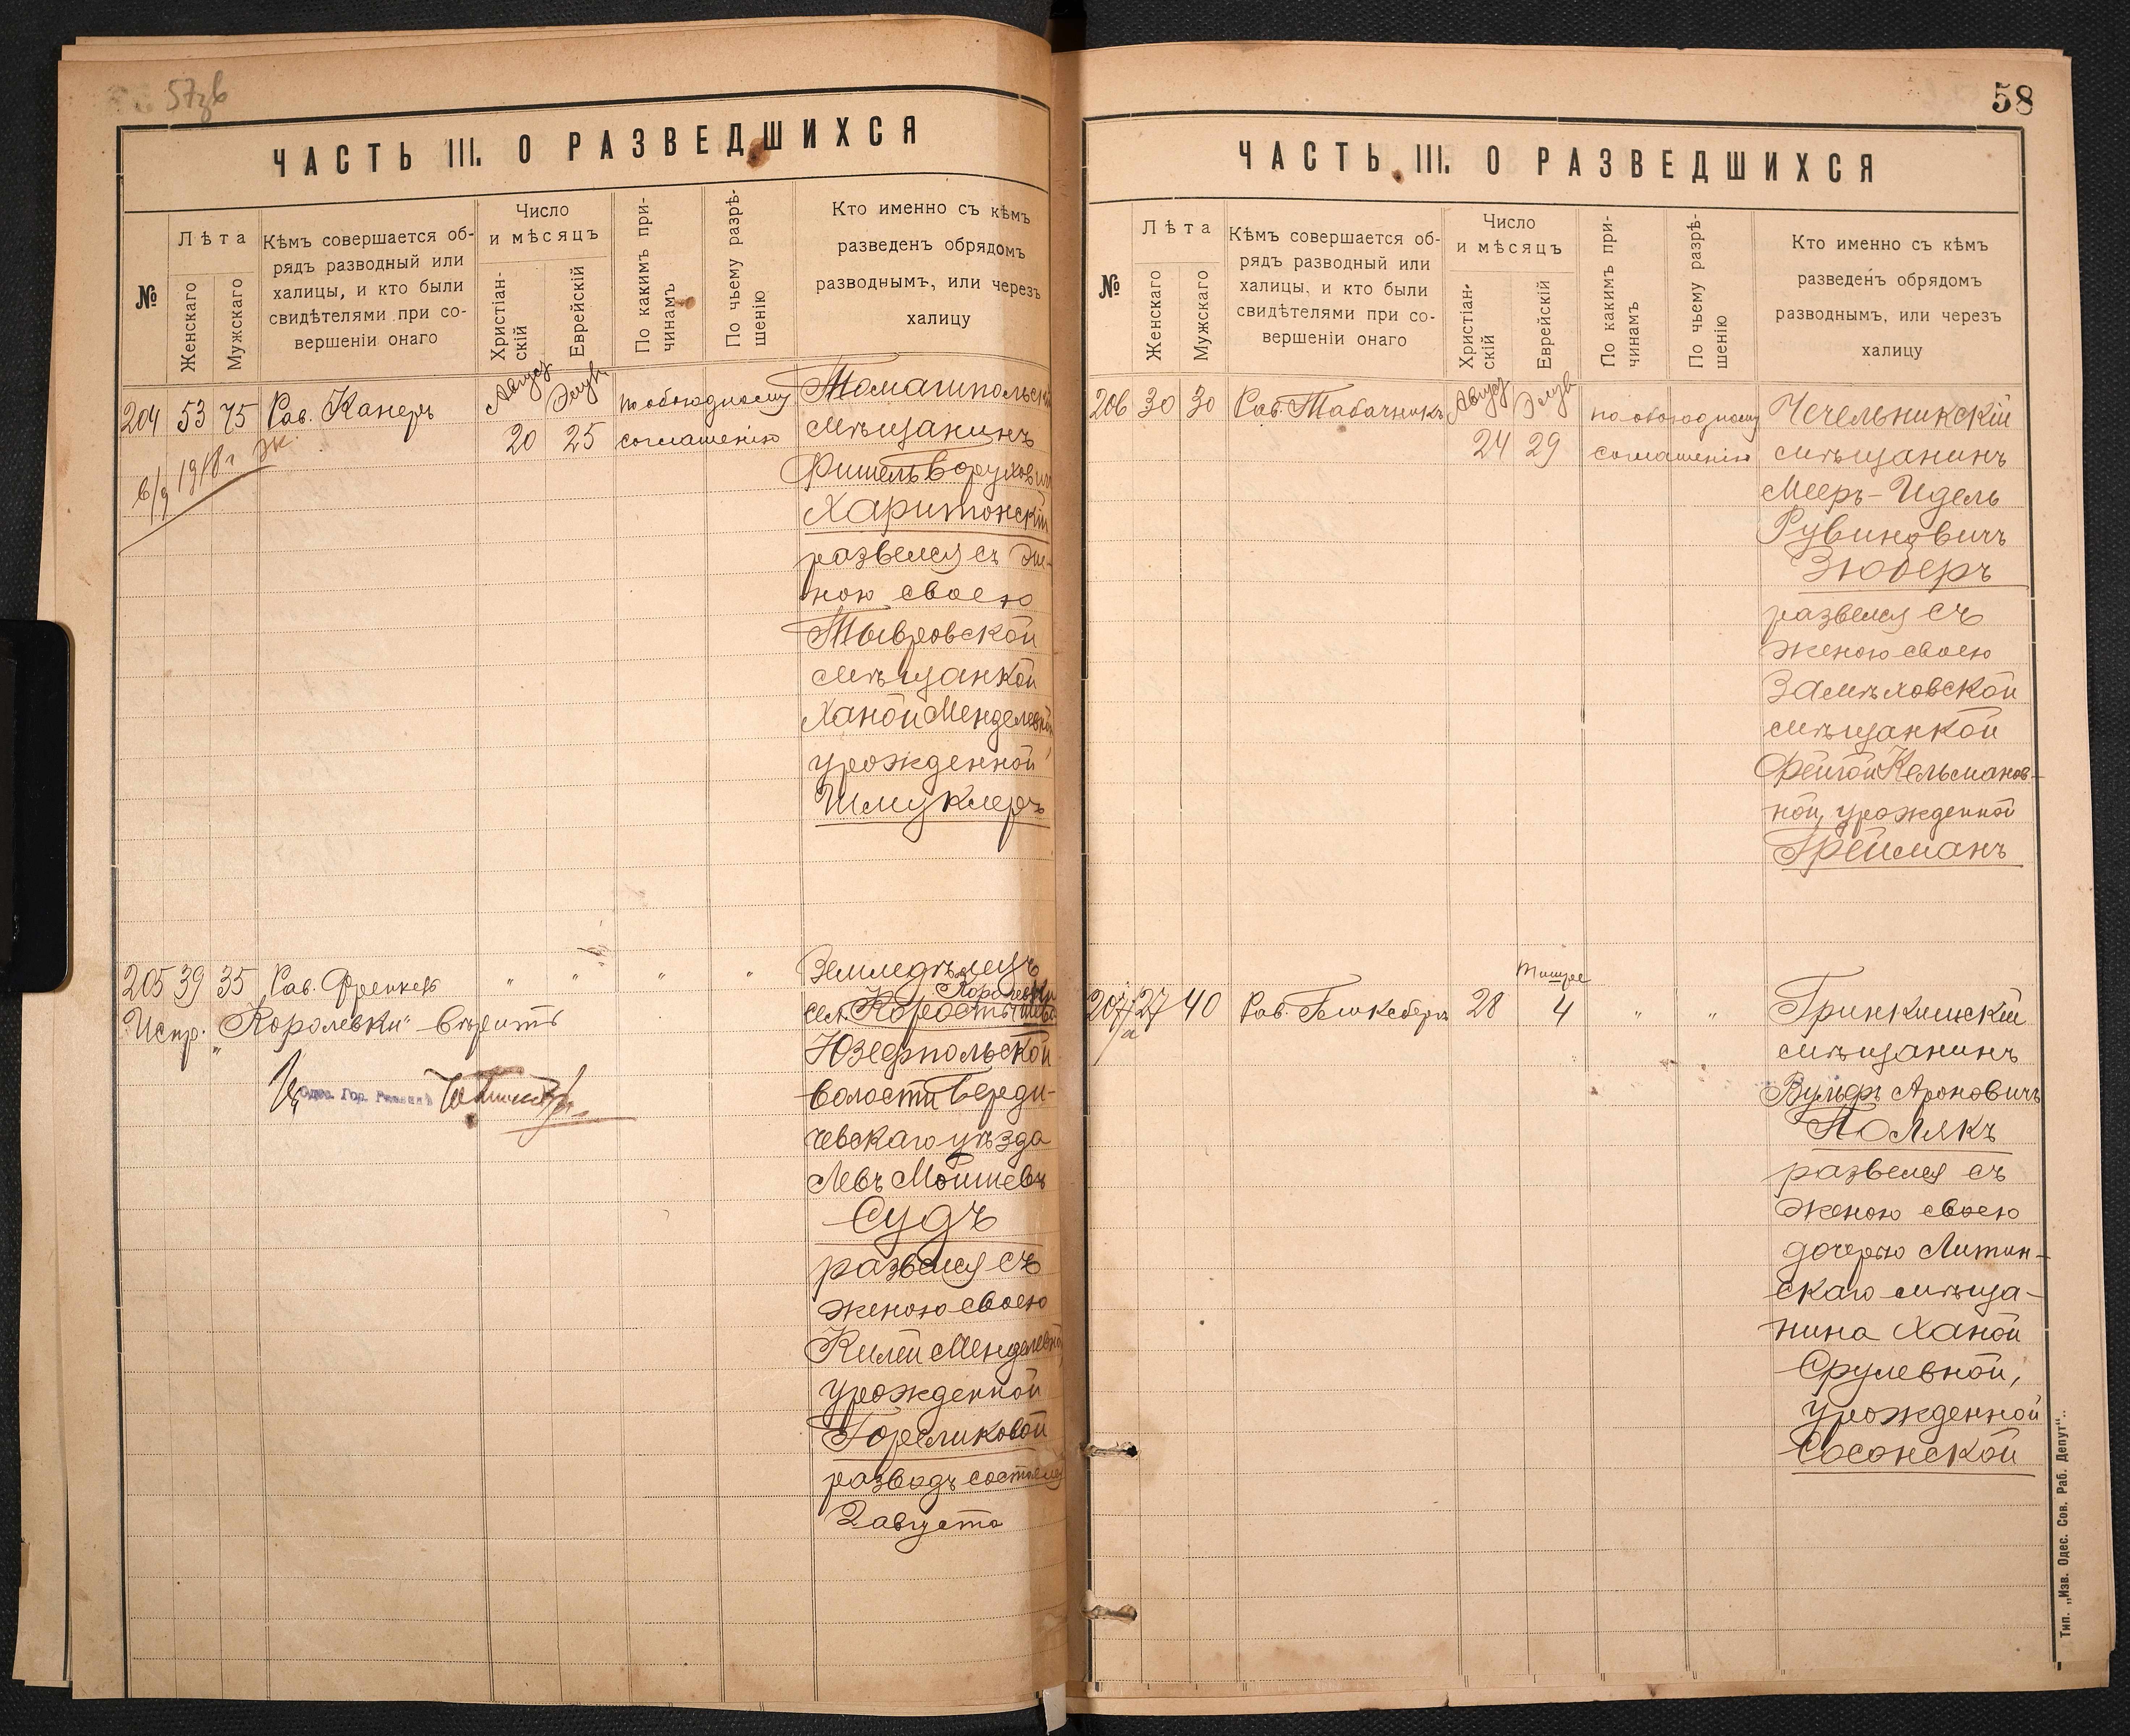 57зв
ЧАСТЬ III. О РАЗВЕДШИХСЯ
№
Лѣта
Женскаго
Мужскаго
Кѣмъ совершается об-
рядъ разводный или
халицы, и кто были
свидѣтелями при со-
вершеніи онаго
Число
и мѣсяцъ
Христіан-
скій
Еврейскій
По какимъ при-
чинамъ
По чьему разрѣ-
шенію
Кто именно съ кѣмъ
разведенъ обрядомъ
разводнымъ, или черезъ
халицу
204 53 75 Рав. Канеръ
Август 20
Элув 25
по обоюдному
соглашенію
1918 г
Томашпольскій
мѣщанинъ
Фишель Боруховичъ
Харитонскій
развелся съ же-
ною своею
Тывровской
мѣщанкой
Ханой Менделевной,
урожденной
Шмуклеръ
205 39 35 Рав. Френкель " " " "
Испр. „Королевки" вѣрить
Одес. Гор. Раввинъ
Земледѣлецъ
Королевки
сел.
Юзефпольской
волости Берди-
чевскаго уѣзда
Левъ Мошковъ
Судъ
развелся съ
женою своею
Килей Менделевной,
урожденной
Гореликовой
разводъ состоялся
2 августа
58
ЧАСТЬ III. О РАЗВЕДШИХСЯ
№
Лѣта
Женскаго
Мужскаго
Кѣмъ совершается об-
рядъ разводный или
халицы, и кто были
свидѣтелями при со-
вершеніи онаго
Число
и мѣсяцъ
Христіан-
скій
Еврейскій
По какимъ при-
чинамъ
По чьему разрѣ-
шенію
Кто именно съ кѣмъ
разведенъ обрядомъ
разводнымъ, или черезъ
халицу
206 30 30 Рав. Табачникъ
Август 24
Элув 29
по обоюдному
соглашенію
Чечельникскій
мѣщанинъ
Мееръ-Идель
Рувиновичъ
Зюберъ
развелся съ
женою своею
Замѣховской
мѣщанкой
Фейгой Кельманов-
ной, урожденной
Грейманъ
207 27 40 Рав. Гликсбергъ 28
Тишре
4 " "
Гринкишскій
мѣщанинъ
Вульфъ Ароновичъ
Полякъ
развелся съ
женою своею
дочерью Литин-
скаго мѣща-
нина Ханой
Срулевной,
урожденной
Сосонской
Тип. „Изв. Одес. Сов. Раб. Депут".